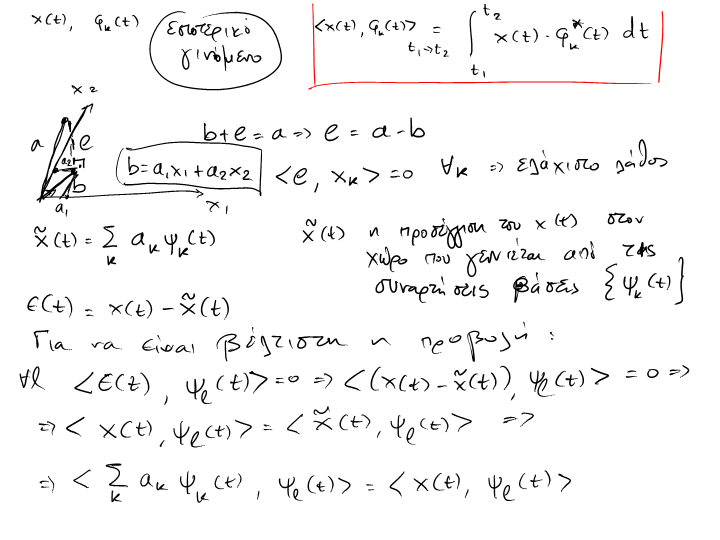 x(t), φ_k(t)
εσωτερικό
γινόμενο
<x(t), φ_k(t)>_{t₁→t₂} = ∫_{t₁}^{t₂} x(t)·φ_k*(t) dt
x₂
a e
a₂
b
a₁ x₁
b+e=a => e = a-b
b=a₁x₁+a₂x₂ <e, x_k>=0 ∀k => ελάχιστο λάθος
x̃(t) = Σ_k a_k ψ_k(t)
x̃(t) η προσέγγιση του x(t) στον
χώρο που γεννιέται από τις
συναρτήσεις βάσεις {ψ_k(t)}
ε(t) = x(t) - x̃(t)
Για να είναι βέλτιστη η προβολή :
∀l <ε(t), ψ_l(t)>=0 => <(x(t)-x̃(t)), ψ_l(t)> = 0 =>
=> < x(t), ψ_l(t)> = < x̃(t), ψ_l(t)> =>
=> < Σ_k a_k ψ_k(t), ψ_l(t)> = < x(t), ψ_l(t)>